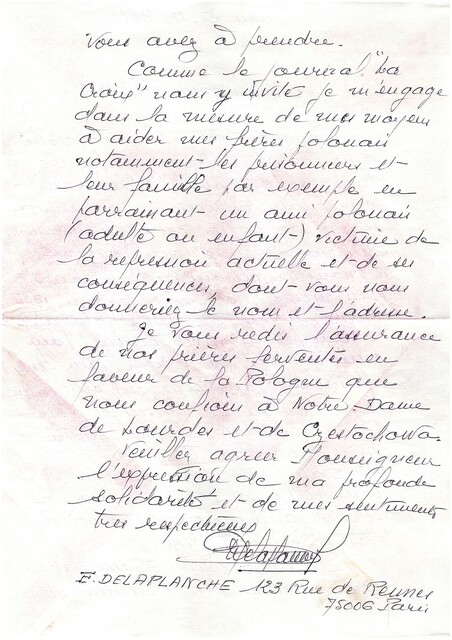 Vous avez à prendre.
Comme le journal "La
Croix" nous y invite je m'engage
dans la mesure de mes moyens
à aider mes frères polonais
notamment les prisonniers et
leur famille par exemple en
parrainant un ami polonais
(adulte ou enfant) victime de
la repression actuelle et de ses
conséquences, dont vous nous
donneriez le nom et l'adresse.
Je vous redis l'assurance
de nos prières ferventes en
faveur de la Pologne que
nous confions à Notre-Dame
de Lourdes et de Czestochowa.
Veuillez agreer Monseigneur
l'expression de ma profonde
solidarité et de mes sentiments
très respectueux
E. DELAPLANCHE 123 Rue de Rennes
75006 Paris